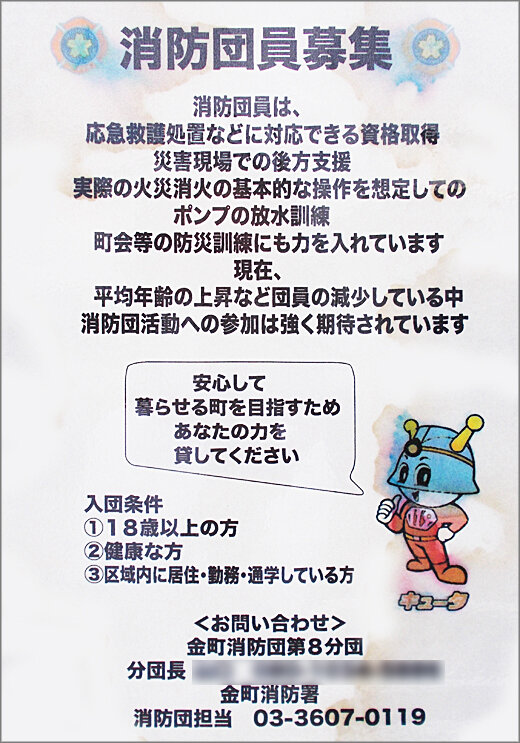 消防団員募集
消防団員は、
応急救護処置などに対応できる資格取得
災害現場での後方支援
実際の火災消火の基本的な操作を想定しての
ポンプの放水訓練
町会等の防災訓練にも力を入れています
現在、
平均年齢の上昇など団員の減少している中
消防団活動への参加は強く期待されています
安心して
暮らせる町を目指すため
あなたの力を
貸してください
入団条件
①18歳以上の方
②健康な方
③区域内に居住・勤務・通学している方
119
キュータ
＜お問い合わせ＞
金町消防団第8分団
分団長
金町消防署
消防団担当 03-3607-0119